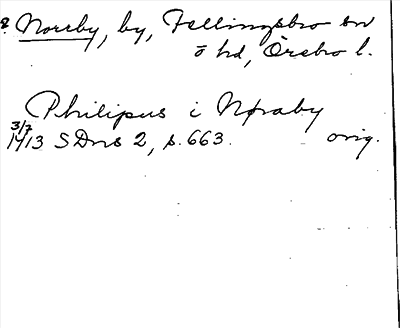 Norrby, by, Fellingsbro sn
ö hd, Örebro l.
Philipus i Noraby
3/7
1413 SDns 2, s. 663. orig.